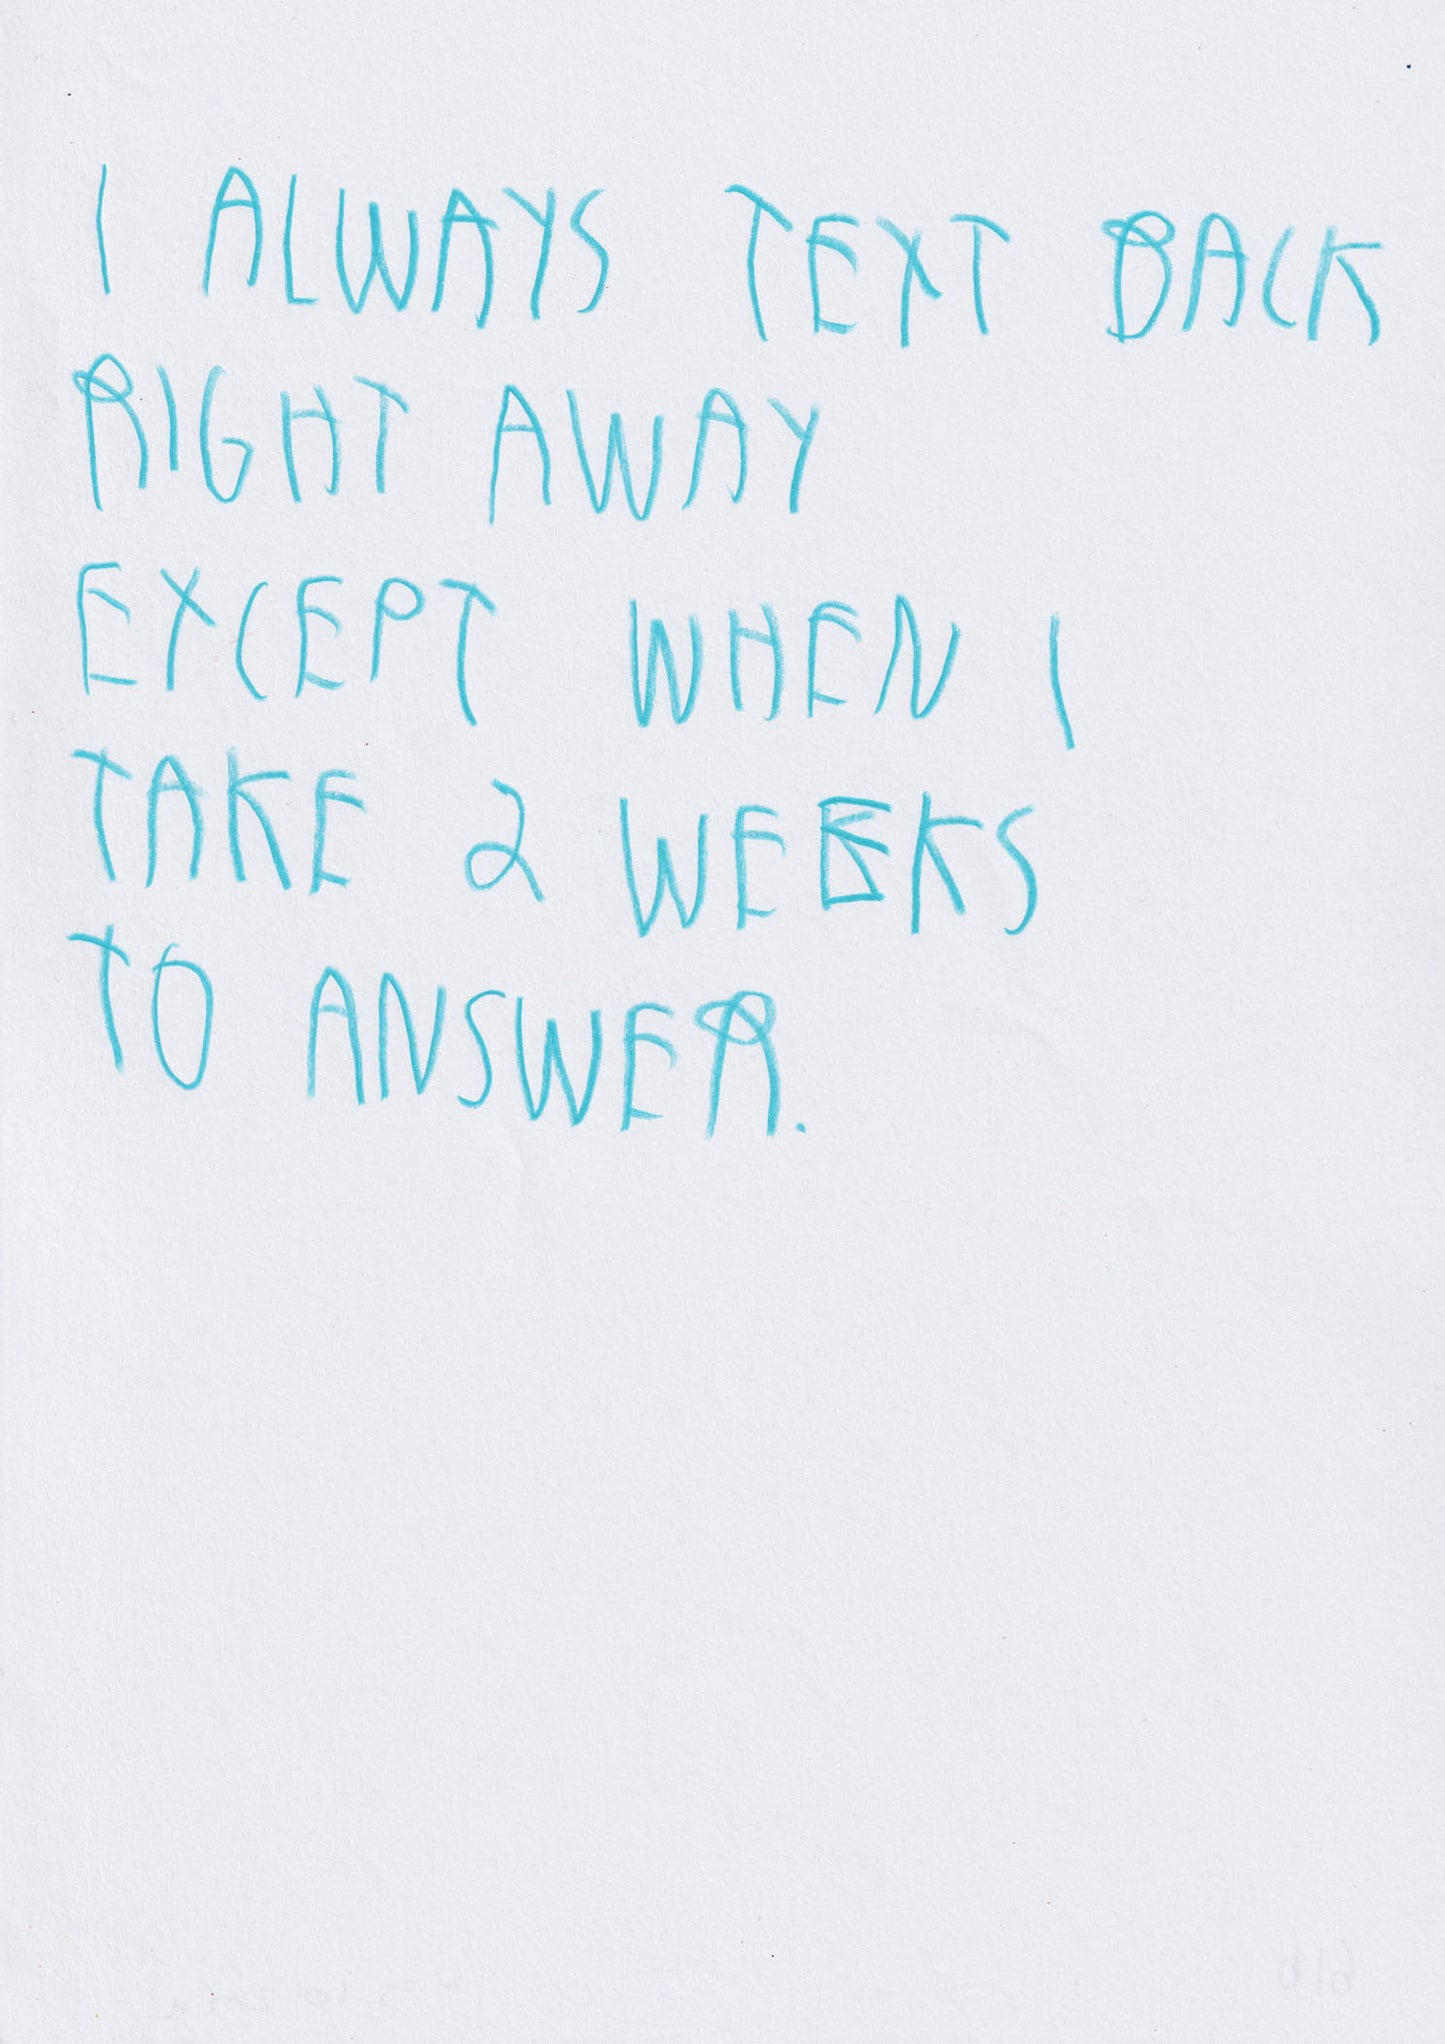 I ALWAYS TEXT BACK
RIGHT AWAY
EXCEPT WHEN I
TAKE 2 WEEKS
TO ANSWER.